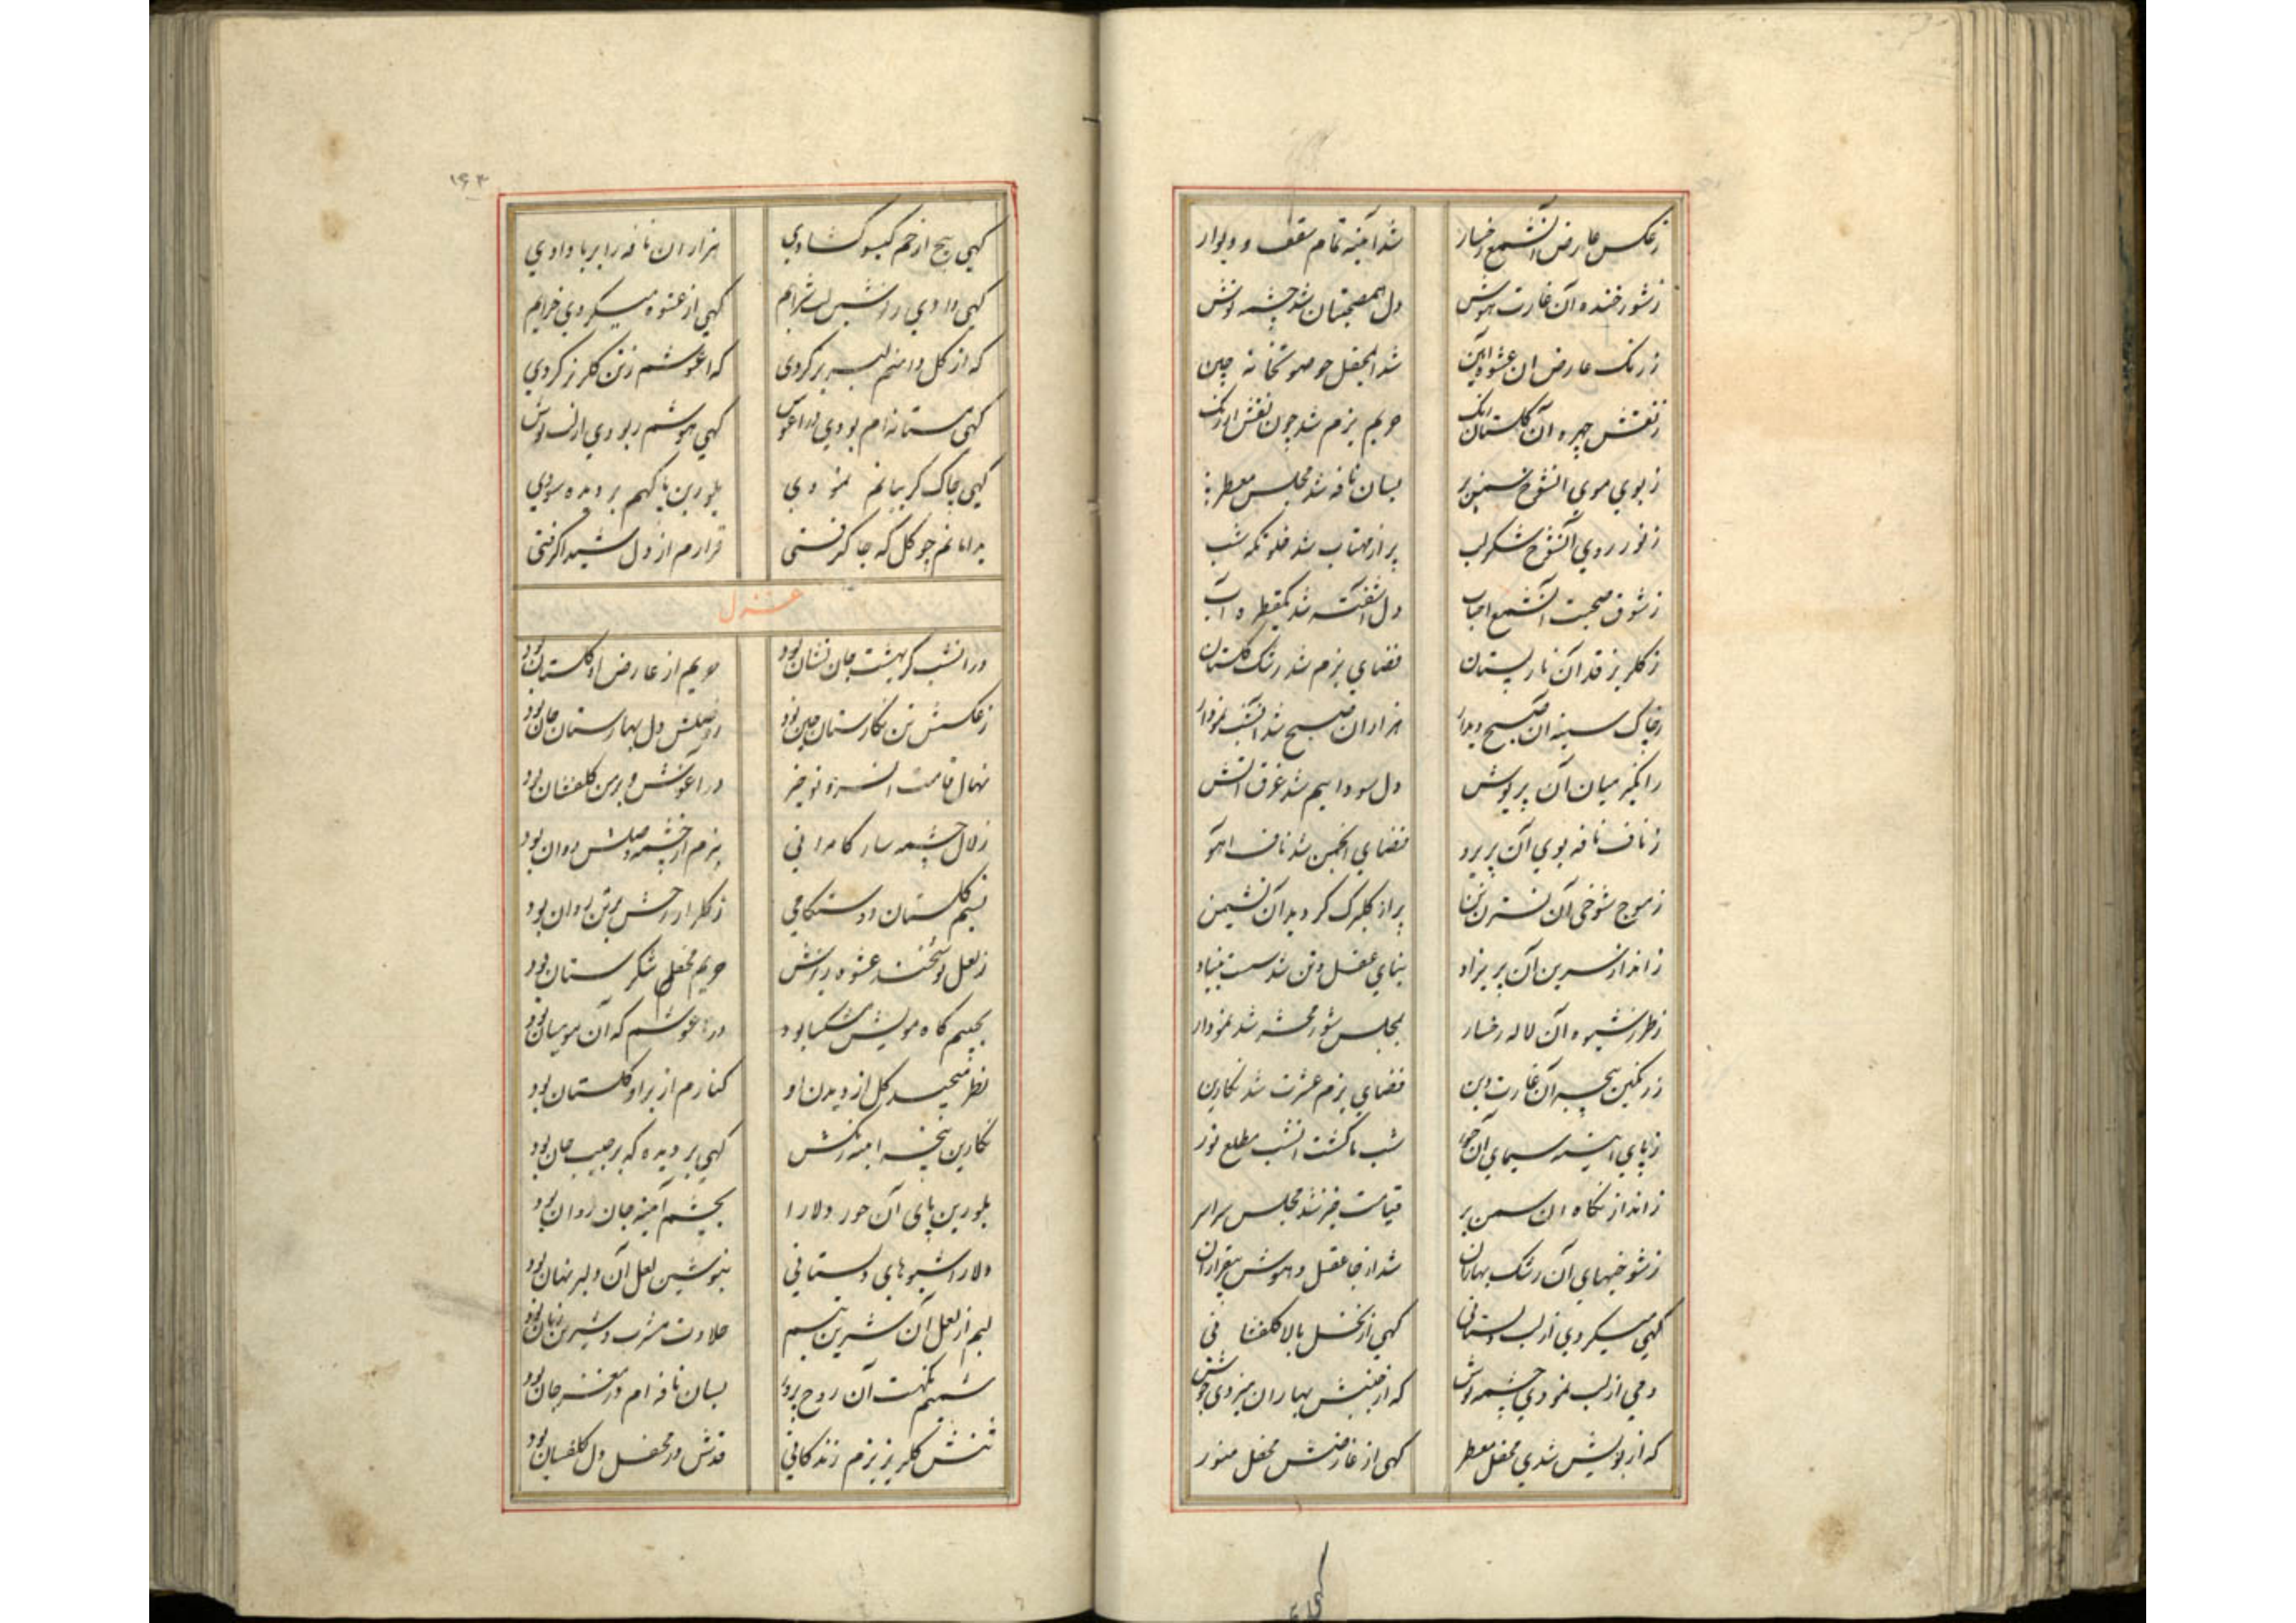 ز عکس عارض آن شمع رخسار
شد آئینه تمام سقف و دیوار
ز شور خنده آن غارت هوش
دل همصحبتان شد چشمه نوش
ز رنک عارض ان عشوه آیین
شد المحفل چو صورتخانه چین
ز نقش چهره آن کلستان رنک
حریم بزم شد چون نقش ارژنک
ز بوی موی انشوخ سمنبر
بسان نافه شد مجلس معطر
ز نور روی آنشوخ شکر لب
پر از مهتاب شد خلوتکه شب
ز شوق صحبت آنشمع احباب
دل آشفته شد یکقطره آب
ز کلریز قد آن نارپستان
فضای بزم شد رشک کلستان
ز چاک سینه ان صبح دیدار
هزاران صبح شد آنشب نمودار
میان آن پریوش
دل سودائیم شد غرق آتش
ز ناف نافه بوی آن پریرو
فضای انجمن شد ناف آهو
ز موج شوخی آن نسترن تن
پر از کلبرک کردید آن نشیمن
ز انداز سرین آن پریزاد
بنای عقل و تن شد سست بنیاد
ز طرز شیوه آن لاله رخسار
بمجلس شور محشر شد نمودار
ز رنکین پنجه آن غارت دین
فضای بزم عشرت شد نکارین
ز پای آینه سیمای آن حور
شب ما کشت انشب مطلع نور
ز انداز نکاه ان سمن بر
قیامت خیز شد مجلس سراسر
ز شوخیهای آن رشک بهاران
شد از جا عقل و هوش بیقراران
کهی میکردی از لب دلستانی
کهی از نخل بالا کلفشانی
دمی از لب نمودی چشمه نوش
که از جنبش بهاران میزدی جوش
که از بویش شدی محفل معطر
کهی از عارضش محفل منور
کهی
۱۶۳
کهی پیچ از خم کیسو کشادی
هزاران نافه را بر باد دادی
کهی دادی ز لب شرابم
کهی از عشوه میکردی خرابم
که از کل دامنم لبریز کردی
که اغوشم ز تن کلریز کردی
کهی مستانه ام بودی در آغوش
کهی هوشم ربودی از لب نوش
کهی چاک کریبانم نمودی
بلورین پا کهم بر دیده سودی
بدامانم چو کل که جا کرفتی
قرارم از دل شیدا کرفتی
غزل
در انشب کز بهشت جان نشان بود
حریم از عارض او کلستان بود
ز عکسش تن نکارستان چین بود
ز وصلش دل بهارستان جان بود
نهال قامت انسرو نوخیز
در آغوش و بر من کلفشان بود
زلال چشمه سار کامرانی
ببزم از چشمه وصلش روان بود
نسیم کلستان دوستکامی
ز کلزار رخش بر تن روان بود
ز لعل نوشخند عشوه ریزش
حریم محفلم شکرستان بود
بجیبم کاه مویش مشکسا بود
در آغوشم که آن موی میان بود
نظر میچید کل از دیدن او
کنارم از بر او کلستان بود
نکارین پنجه آینه رنکش
کهی بر دیده که بر جیب جان بود
بلورین پای آن حور دلارا
بچشم آینه جان روان بود
دلارا شیوهای دلستانی
بنوشین لعل آن دلبر نهان بود
لبم از لعل آن شیرین تبسم
حلاوت مشرب و شیرین زبان بود
شمیم نکهت آن روح پرور
بسان نافه ام در مغز جان بود
تنش کلریز بزم زندکانی
قدش در محفل دل کلفشان بود